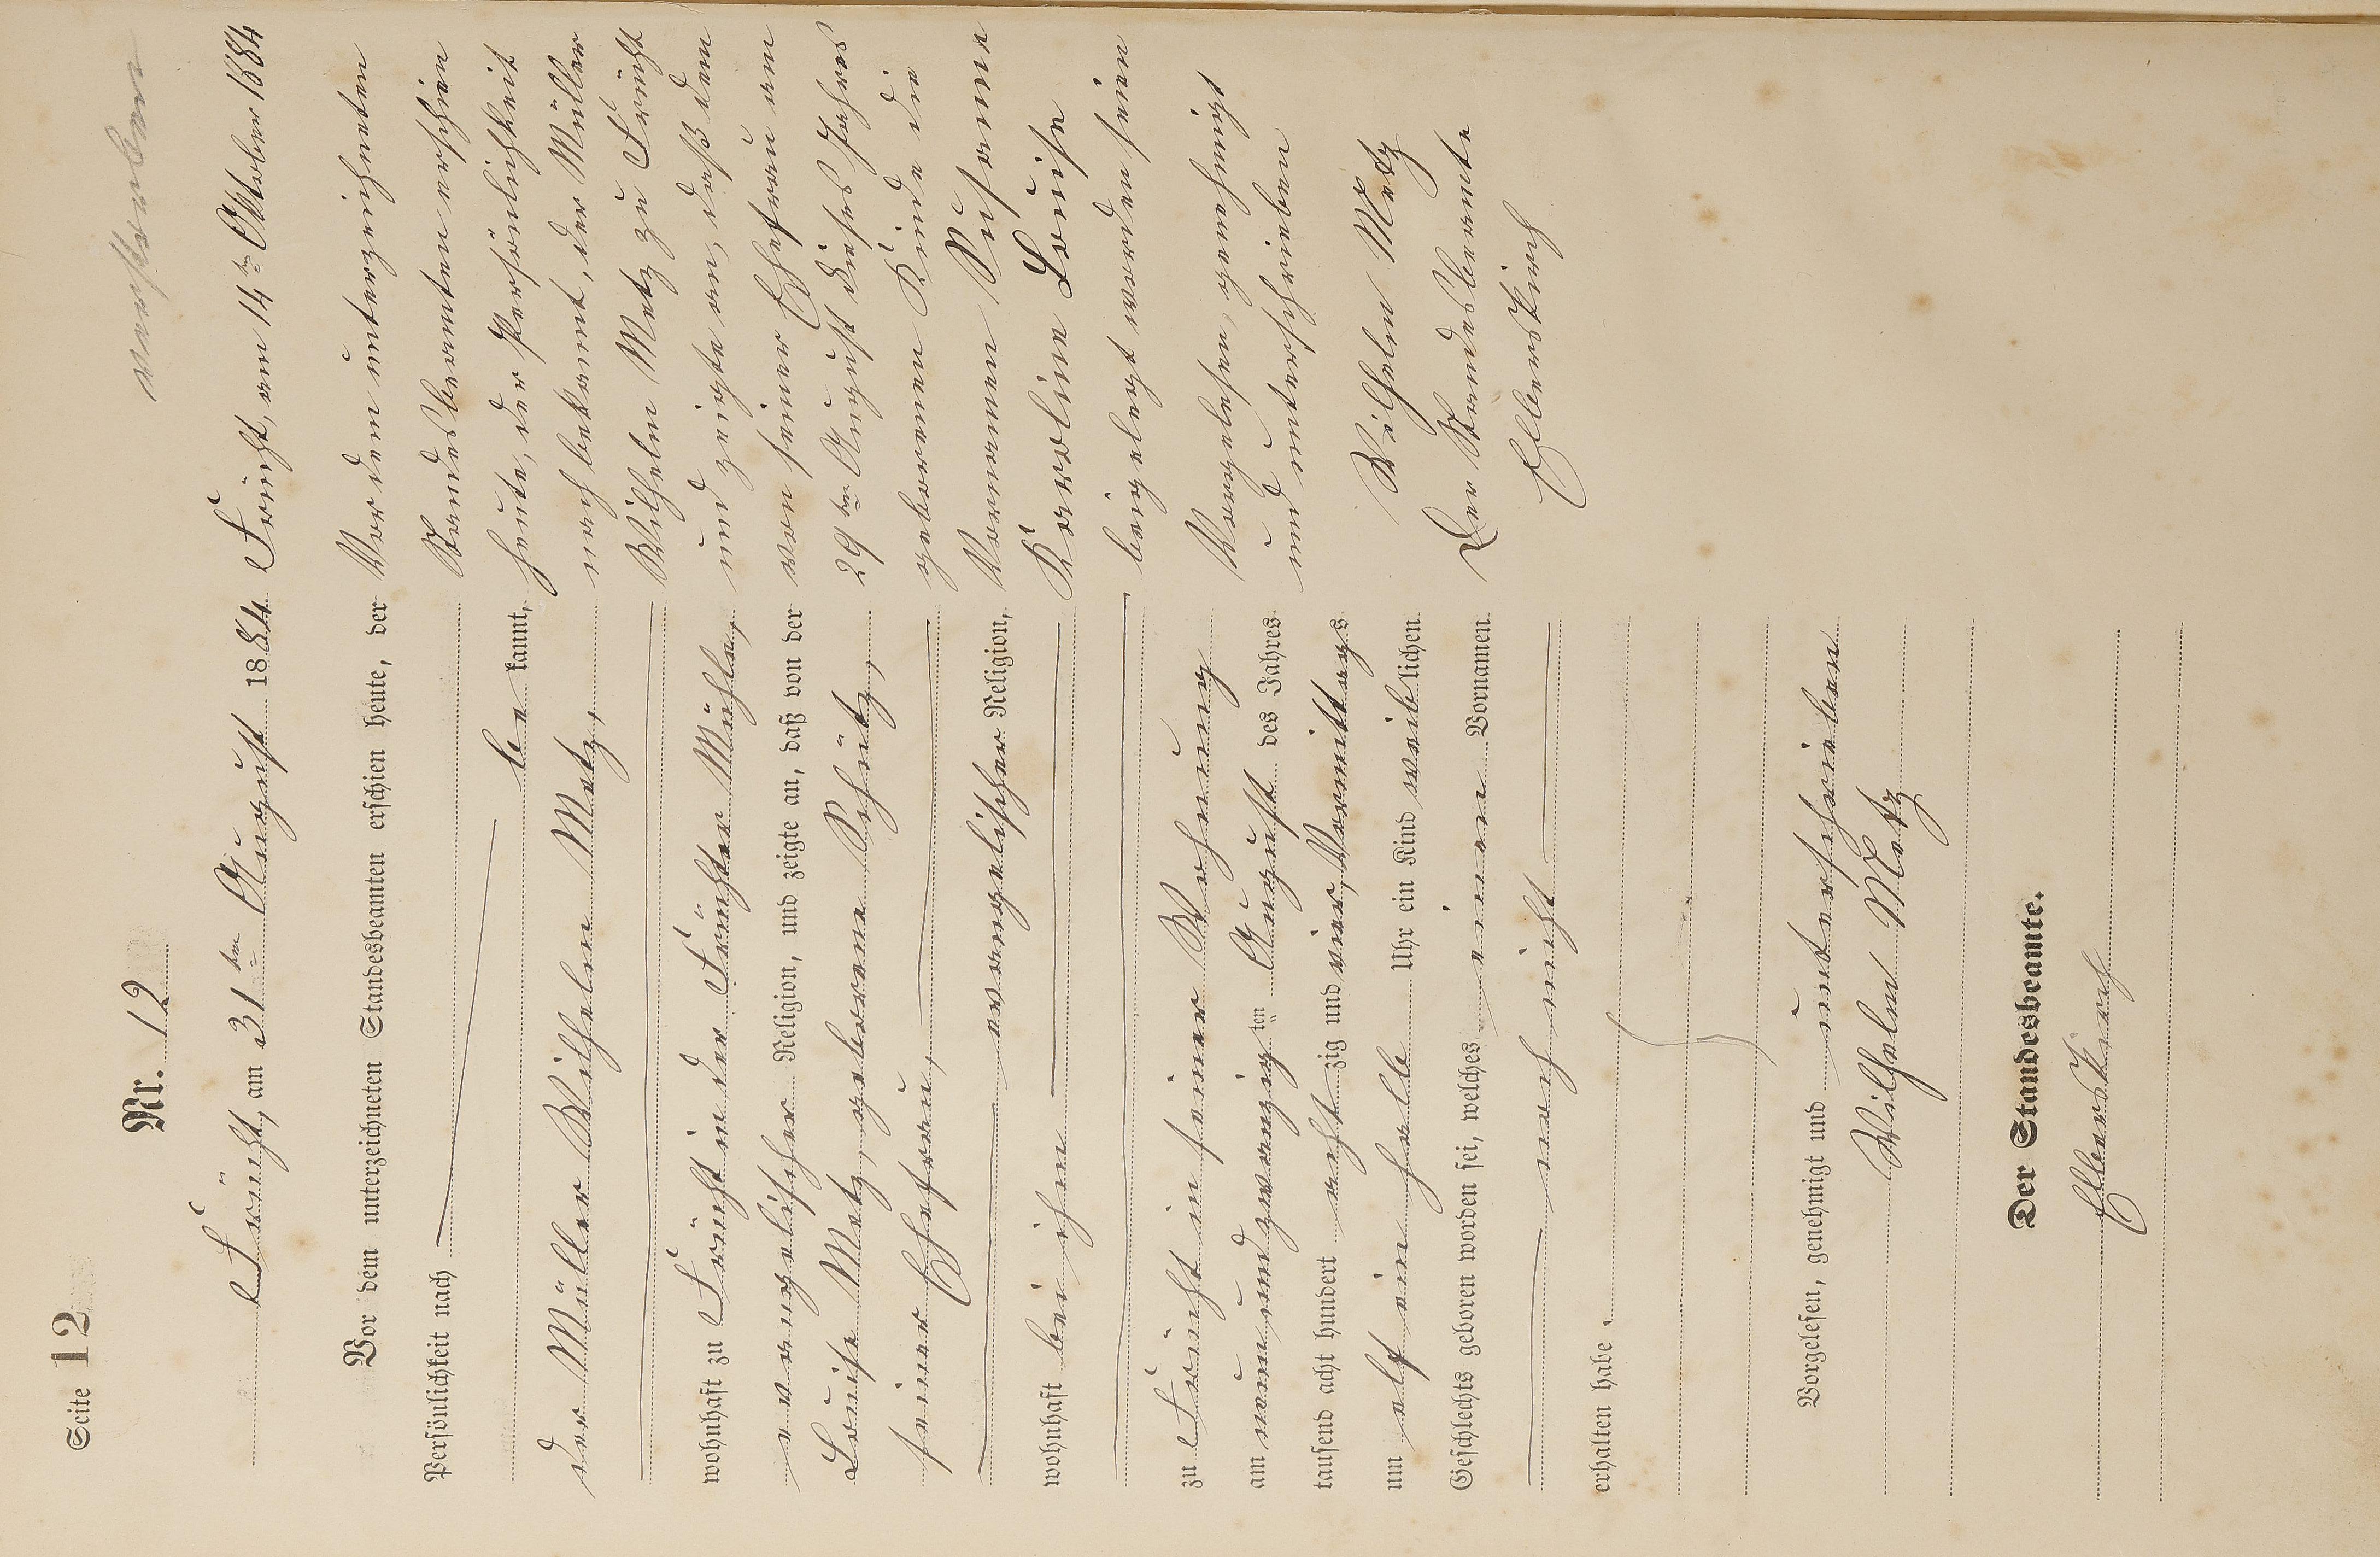 Seite 12
Nr. 12
Frücht, am 31ten August 1884
Vor dem unterzeichneten Standesbeamten erschien heute, der
Persönlichkeit nach
bekannt,
der Müller Wilhelm Metz,
wohnhaft zu Frücht in der Früchter Mühle,
evangelischer Religion, und zeigte an, daß von der
Louise Metz, geborene Schütz,
seiner Ehefrau,
evangelischer Religion,
wohnhaft bei ihm
zu Frücht in seiner Wohnung
am neunundzwanzigten August des Jahres
tausend acht hundert achtzig und vier, Vormittags
um elf ein halb Uhr ein Kind weiblichen
Geschlechts geboren worden sei, welches einen Vornamen
noch nicht
erhalten habe.
Vorgelesen, genehmigt und unterschrieben
Wilhelm Metz
Der Standesbeamte.
Ebertskirch
verstorben
Frücht, am 14ten Oktober 1884
Vor dem unterzeichneten
Standesbeamten erschien
heute, der Persönlichkeit
nach bekannt, der Müller
Wilhelm Metz zu Frücht
und zeigte an, daß dem
von seiner Ehefrau am
29ten August dieses Jahres
geborenen Kinde die
Vornamen Susanne
Karoline Louise
beigelegt worden seien
Vorgelesen, genehmigt
und unterschrieben
Wilhelm Metz
Der Standesbeamte